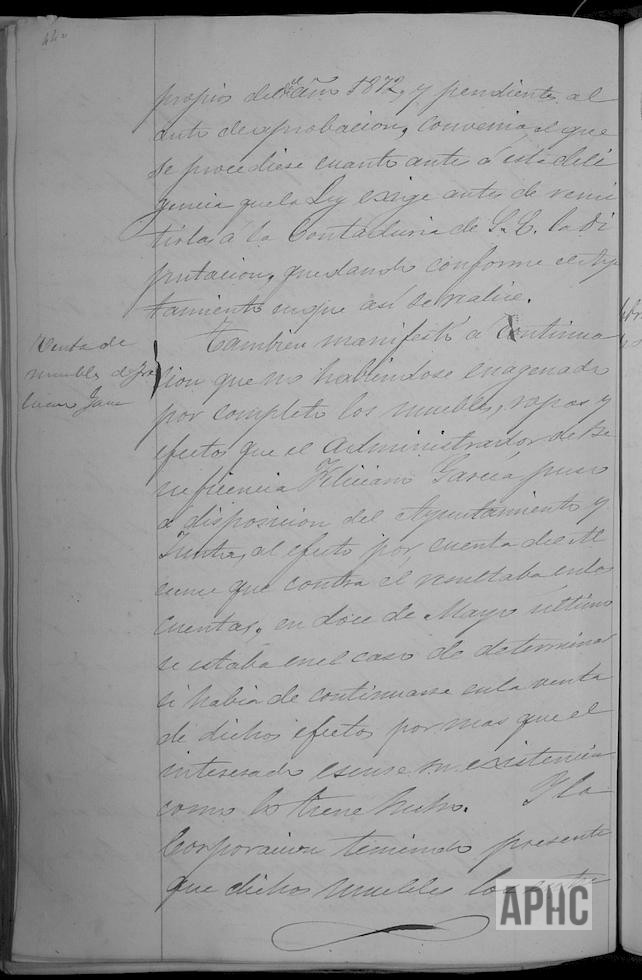 propios del año 1872, y pendiente al
de aprobacion, convenia el que
se procediese cuanto antes á esta dili
gencia que la Ley exige antes de remi
tirlas á la Contaduria de S. E. la Di
putacion, quedando conforme el Ayun
tamiento en que asi se realice.
Venta de
muebles de Fe
liciano Garcia
Tambien manifestó á continua
cion que no habiendose enagenado
por completo los muebles, ropas y
efectos que el Administrador de Be
neficencia Feliciano Garcia puso
á disposicion del Ayuntamiento y
Junta, al efecto por cuenta del Al
cance que contra el resultaba en las
cuentas, en doce de Mayo ultimo
se estaba en el caso de determinar
si habia de continuarse en la venta
de dichos efectos por mas que el
interesado escuse su existencia
como lo tiene hecho. Y la
Corporacion teniendo presente
que dichos muebles los
APHC